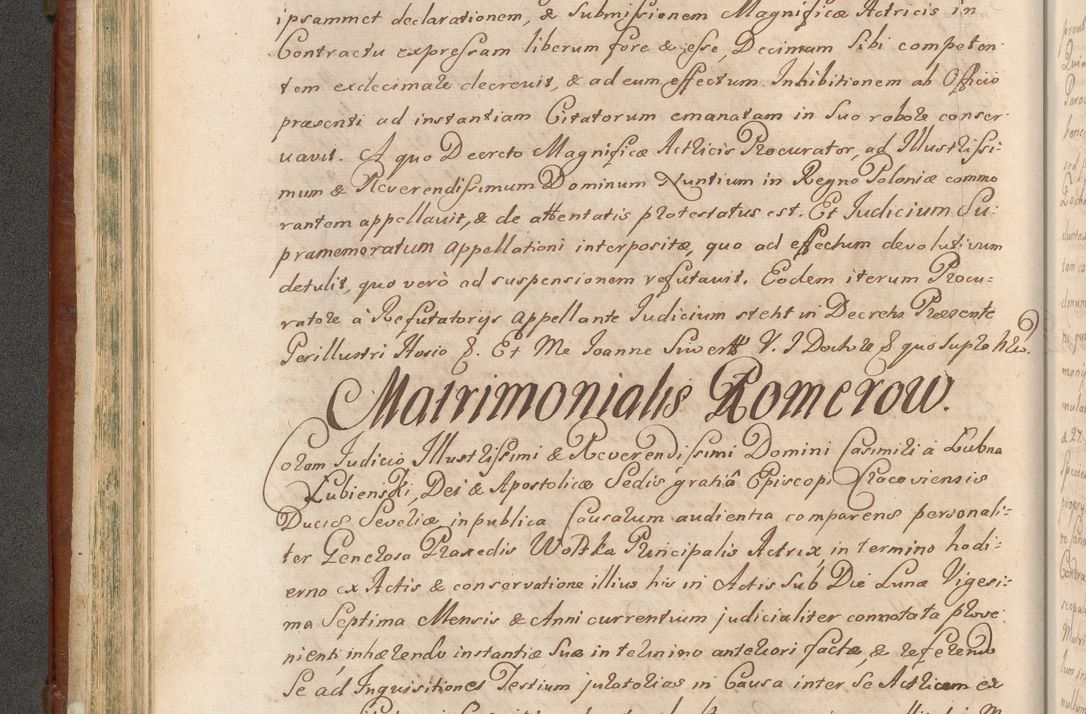 ipsammet declarationem, & Submissionem Magnificæ Actricis in
Contractu expressam liberum fore & esse, Decimam Sibi competen
tem exdecimare decrevit, & ad eum effectum Inhibitionem ab Officio
præsenti ad instantiam Citatorum emanatam in Suo robore conser
uavit. A quo Decreto Magnificæ Actricis Procurator, ad Illustrissi-
mum & Reverendissimum Dominum Nuntium in Regno Poloniæ commo
rantem appellavit, & de attentatis protestatus est. Et Iudicium Su-
pramemoratum appellationi interpositæ, quo ad effectum devolutivum
detulit, quo verò ad suspensionem refutavit. Eodem iterum Procu=
ratore à Refutatorijs appellante Iudicium stetit in Decreto Præsente
Perillustri Hosio &. Et Me Joanne Siwertt V. I Doctore & quo supra
Matrimonialis Romerow.
Coram Judicio Illustrissimi & Reverendissimi Domini Casimiri à Łubna
Łubienski, Dei & Apostolicæ Sedis gratiâ Episcopi Cracoviensis
Ducis Severiæ, in publica Causarum audientia comparens personali-
ter Generosa Praxedis Wolska Principalis Actrix in termino hodi-
erno ex Actis & conservatione illius his in Actis Sub Die Lunæ Vigesi=
ma Septima Mensis & Anni currentium judicialiter connotata prove
nienti inhærendo instantiæ Suæ in termino anteriori factæ, & referendo
Se ad Inquisitiones Testium juratorias in Causa inter Se Actricem ex